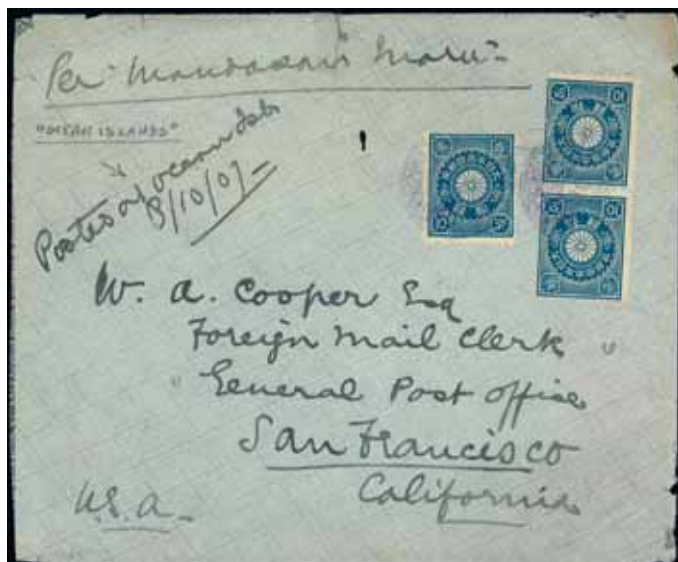 Per "Mandasan Maru"
"OCEAN ISLANDS"
Posted at Ocean Isls
8/10/07
W. A. Cooper Esq
Foreign Mail Clerk
General Post Office
San Francisco
California
U.S.A.